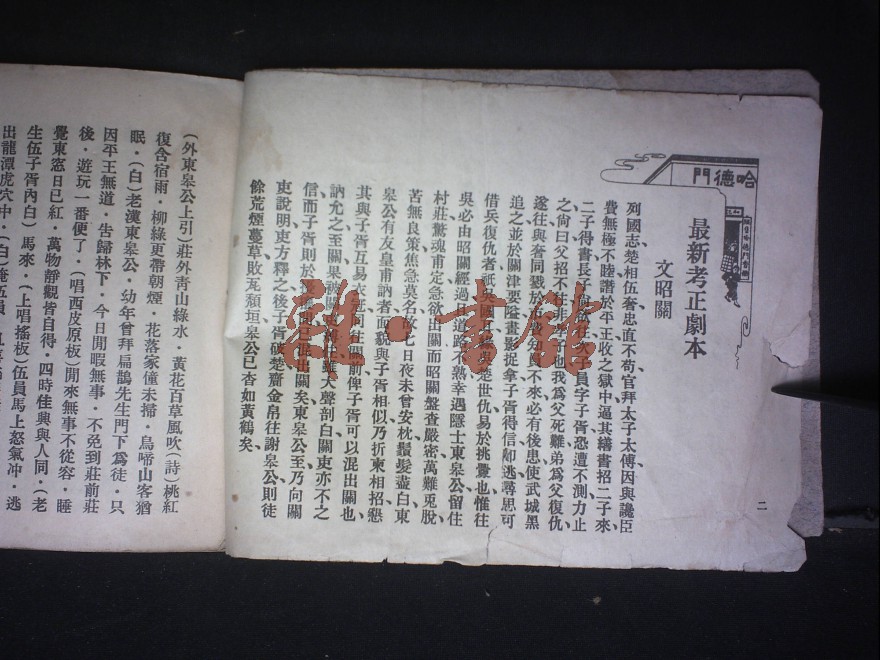 哈德門
最新考正劇本
文昭關
二
列國志楚相伍奢忠直不苟官拜太子太傅因與讒臣
費無極不睦譖於平王收之獄中逼其繕書招二子來
二子得書長子尚欲往次子員字子胥恐遭不測力止
之尙曰父招不往非
也我爲父死難弟爲父復仇
遂往與奢同戮於市
知員不來必有後患使武城黑
追之並於關津要隘畫影捉拿子胥得信
逃尋思可
借兵復仇者祇
楚世仇易於挑釁也惟往
吳必由昭關經過
道路不熟幸遇隱士東皋公留住
村莊驚魂甫定急欲出關而昭關盤查嚴密萬難兎脫
苦無良策焦急莫名故七日夜未曾安枕鬚髮盡白東
皋公有友皇甫訥者面貌與子胥相似乃折柬相招懇
其與子胥互易衣
同往關前俾子胥可以混出關也
訥允之至關果被關
雖大聲剖白關吏亦不之
信而子胥則於
混出關矣東皋公至乃向關
吏說明吏方釋之後子胥破楚齎金帛往謝皋公則徒
餘荒煙蔓草敗瓦頹垣皋公已杳如黃鶴矣
(外東皋公上引)莊外靑山綠水．黃花百草風吹(詩)桃紅
復含宿雨．柳綠更帶朝煙．花落家僮未掃．鳥啼山客猶
眠．(白)老漢東皋公．幼年曾拜扁鵲先生門下爲徒．只
因平王無道．告歸林下．今日閒暇無事．不免到莊前莊
後．遊玩一番便了．(唱西皮原板)閒來無事不從容．睡
覺東窓日已紅．萬物靜觀皆自得．四時佳興與人同．(老
生伍子胥內白)馬來．(上唱搖板)伍員馬上怒氣冲．逃
出龍潭虎穴中．(白)俺伍員．
雅・書館